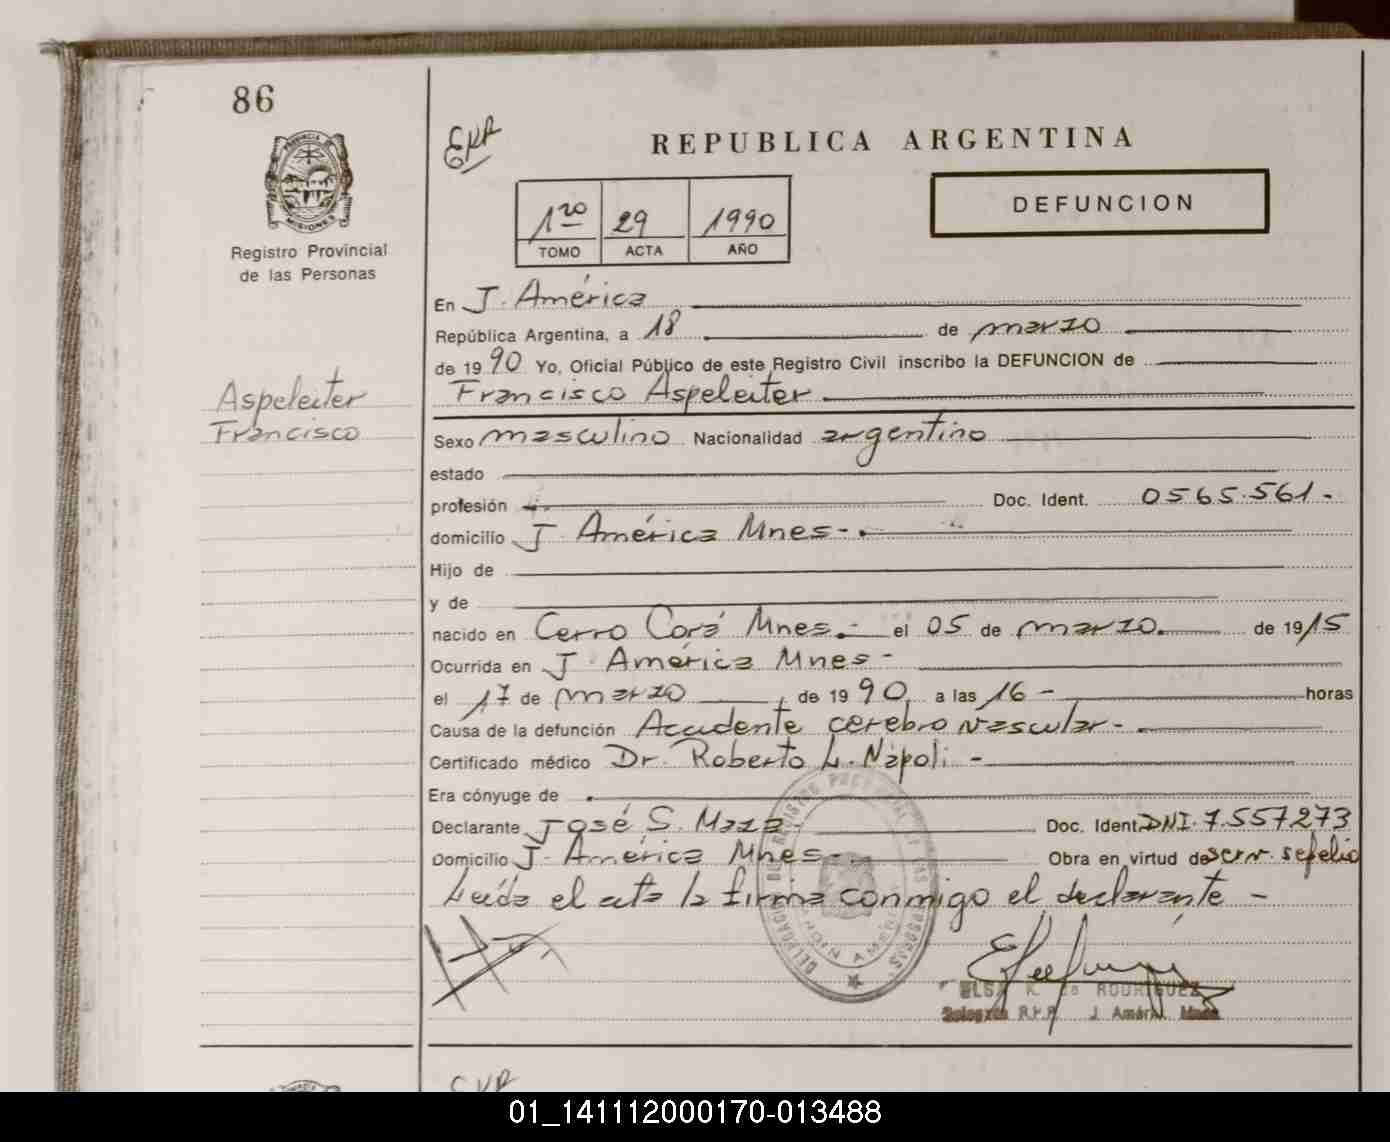 86
EKR
REPUBLICA ARGENTINA
PROVINCIA DE
MISIONES
1ro 29 1990
TOMO ACTA AÑO
DEFUNCION
Registro Provincial
de las Personas
En J. América
República Argentina, a 18 de marzo
de 1990 Yo, Oficial Público de este Registro Civil inscribo la DEFUNCION de
Aspeleiter
Francisco Aspeleiter
Francisco
Sexo masculino Nacionalidad argentino
estado
profesión Doc. Ident. 0565.561.-
domicilio J. América Mnes-.
Hijo de
y de
nacido en Cerro Corá Mnes.- el 05 de marzo. de 1915
Ocurrida en J. América Mnes-
el 17 de marzo de 1990 a las 16- horas
Causa de la defunción Accidente cerebro vascular-
Certificado médico Dr. Roberto L. Nápoli-
Era cónyuge de
Declarante José S. Maza- Doc. Ident. DNI. 7.557.273
Domicilio J. América Mnes- Obra en virtud de serv. sepelio
Leída el acta la firma conmigo el declarante-
DELEGACION DE REGISTRO PROVINCIAL DE LAS PERSONAS
JARDIN AMERICA
ELSA K. de RODRIGUEZ
Delegada R.P.P. J. Amér. Mnes
01_141112000170-013488